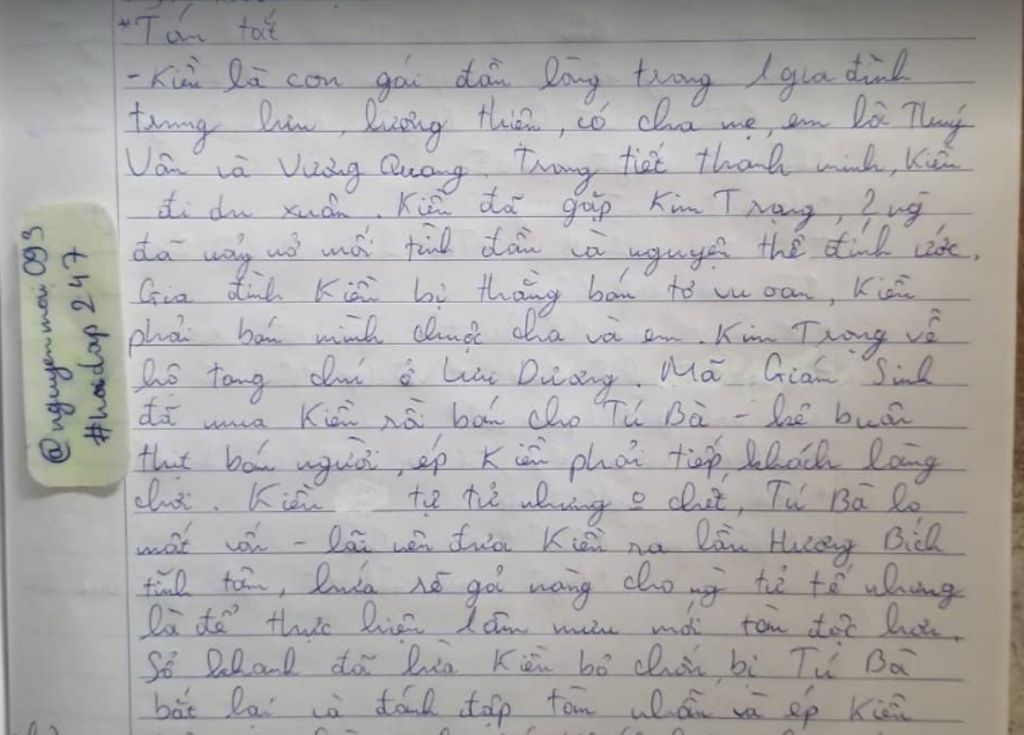 *Tóm tắt
- Kiều là con gái đầu lòng trong 1 gia đình
trung lưu, lương thiện, có cha mẹ, em là Thuý
Vân và Vương Quang. Trong tiết thanh minh, Kiều
đi du xuân. Kiều đã gặp Kim Trọng, 2 ng
đã nảy nở mối tình đầu và nguyện thề đính ước.
Gia đình Kiều bị thằng bán tơ vu oan, Kiều
phải bán mình chuộc cha và em. Kim Trọng về
hộ tang chú ở Liêu Dương. Mã Giám Sinh
đã mua Kiều rồi bán cho Tú Bà - kẻ buôn
thịt bán người, ép Kiều phải tiếp khách làng
chơi. Kiều tự tử nhưng o chết, Tú Bà lo
mất vốn - lãi nên đưa Kiều ra lầu Hương Bích
tĩnh tâm, hứa sẽ gả nàng cho ng tử tế nhưng
là để thực hiện âm mưu mới tàn độc hơn.
Sở Khanh đã lừa Kiều bỏ chốn, bị Tú Bà
bắt lại và đánh đập tàn nhẫn và ép Kiều
@nguyenmai093
#hoidap247